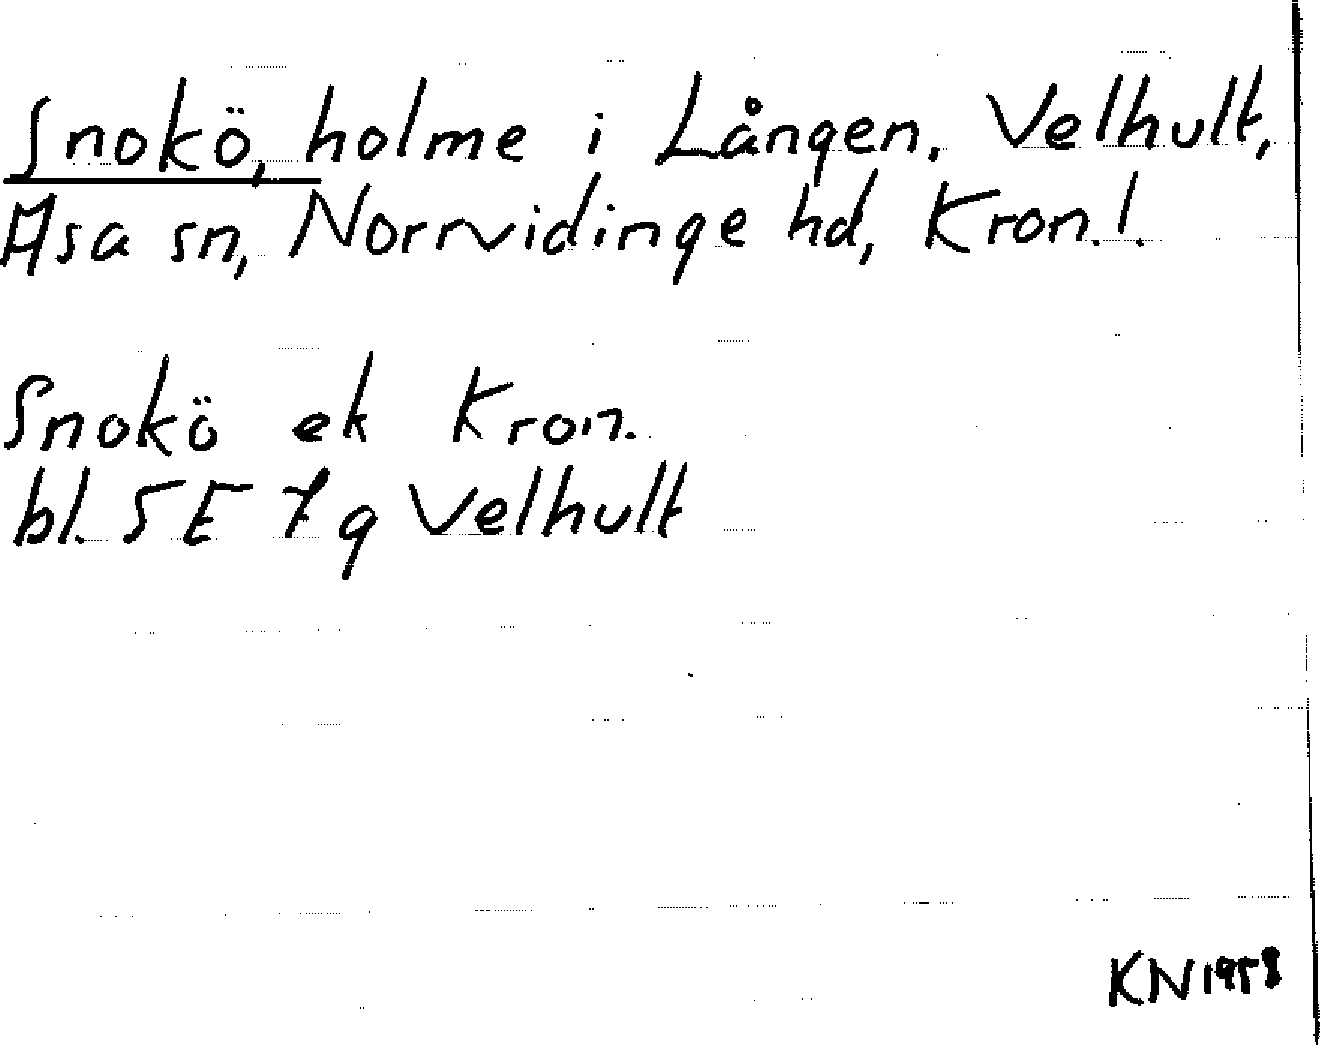 Snokö, holme i Lången. Velhult,
Asa sn, Norrvidinge hd, Kron.l.
Snokö ek Kron.
bl. 5E 7g Velhult
KN1958